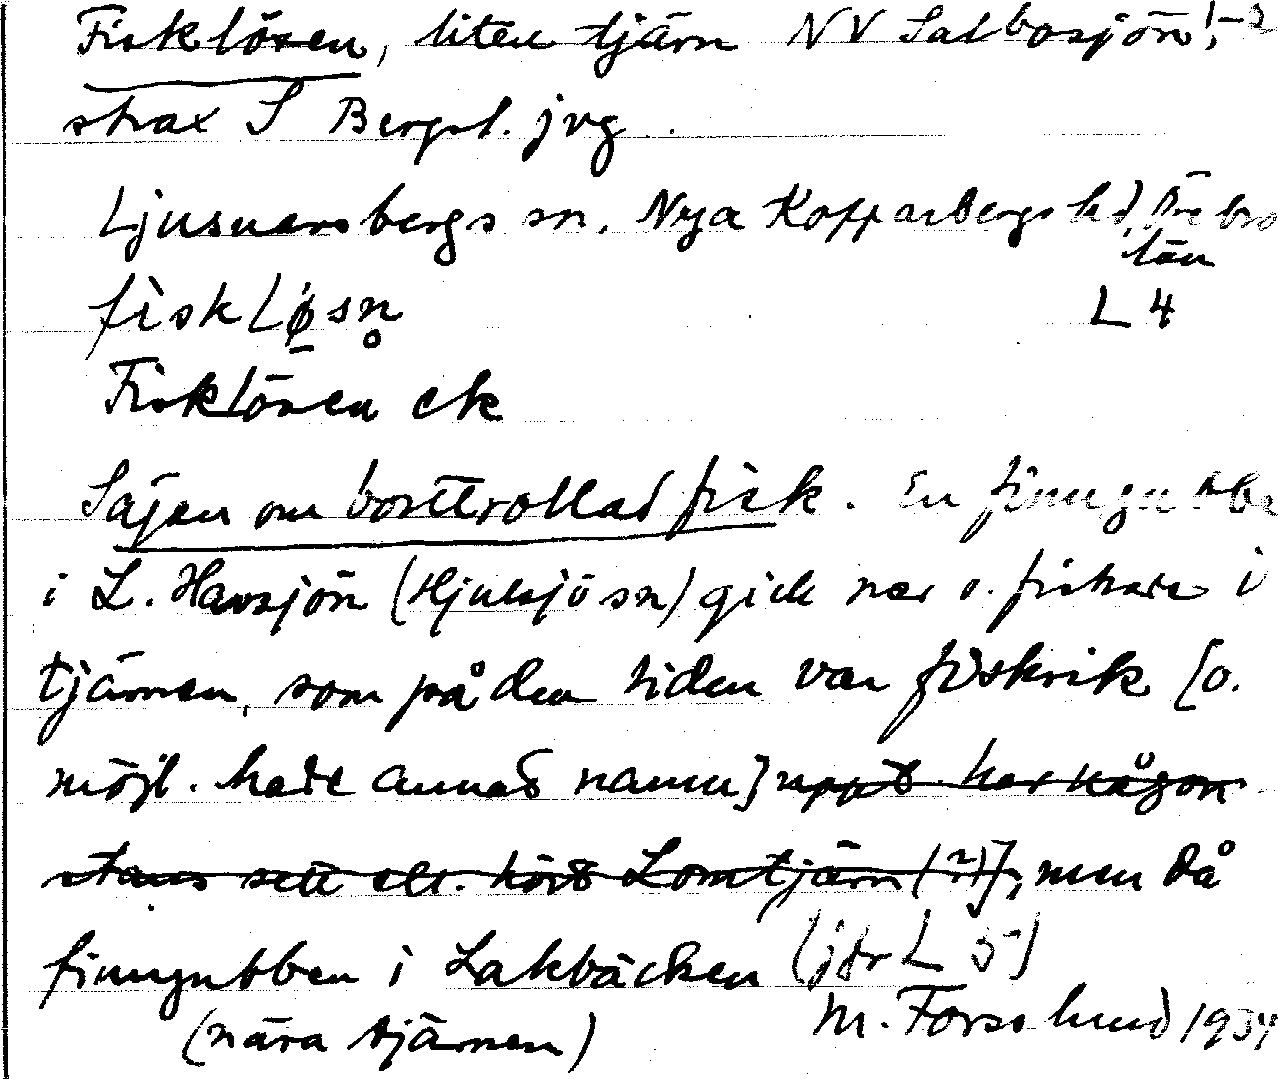 Fisklösen, liten tjärn NV Salbosjön!, -2
strax S Bergsl. jvg.
Ljusnarsbergs sn. Nya Kopparbergs hd, Örebro
län
fiskløsn̥
L 4
Fisklösen ek
Sägen om borttrollad fisk. En finngubbe
i L. Havsjön (Hjulsjö sn) gick ner o. fiskade i
tjärnen, som på den tiden var fiskrik [o.
möjl. hade annat namn] uppt. har någon
stans sett ell. hört Lomtjärn (?)], men då
finngubben i Lakbäcken (jfr L 5)
(nära tjärnen)
M. Forsslund 1934